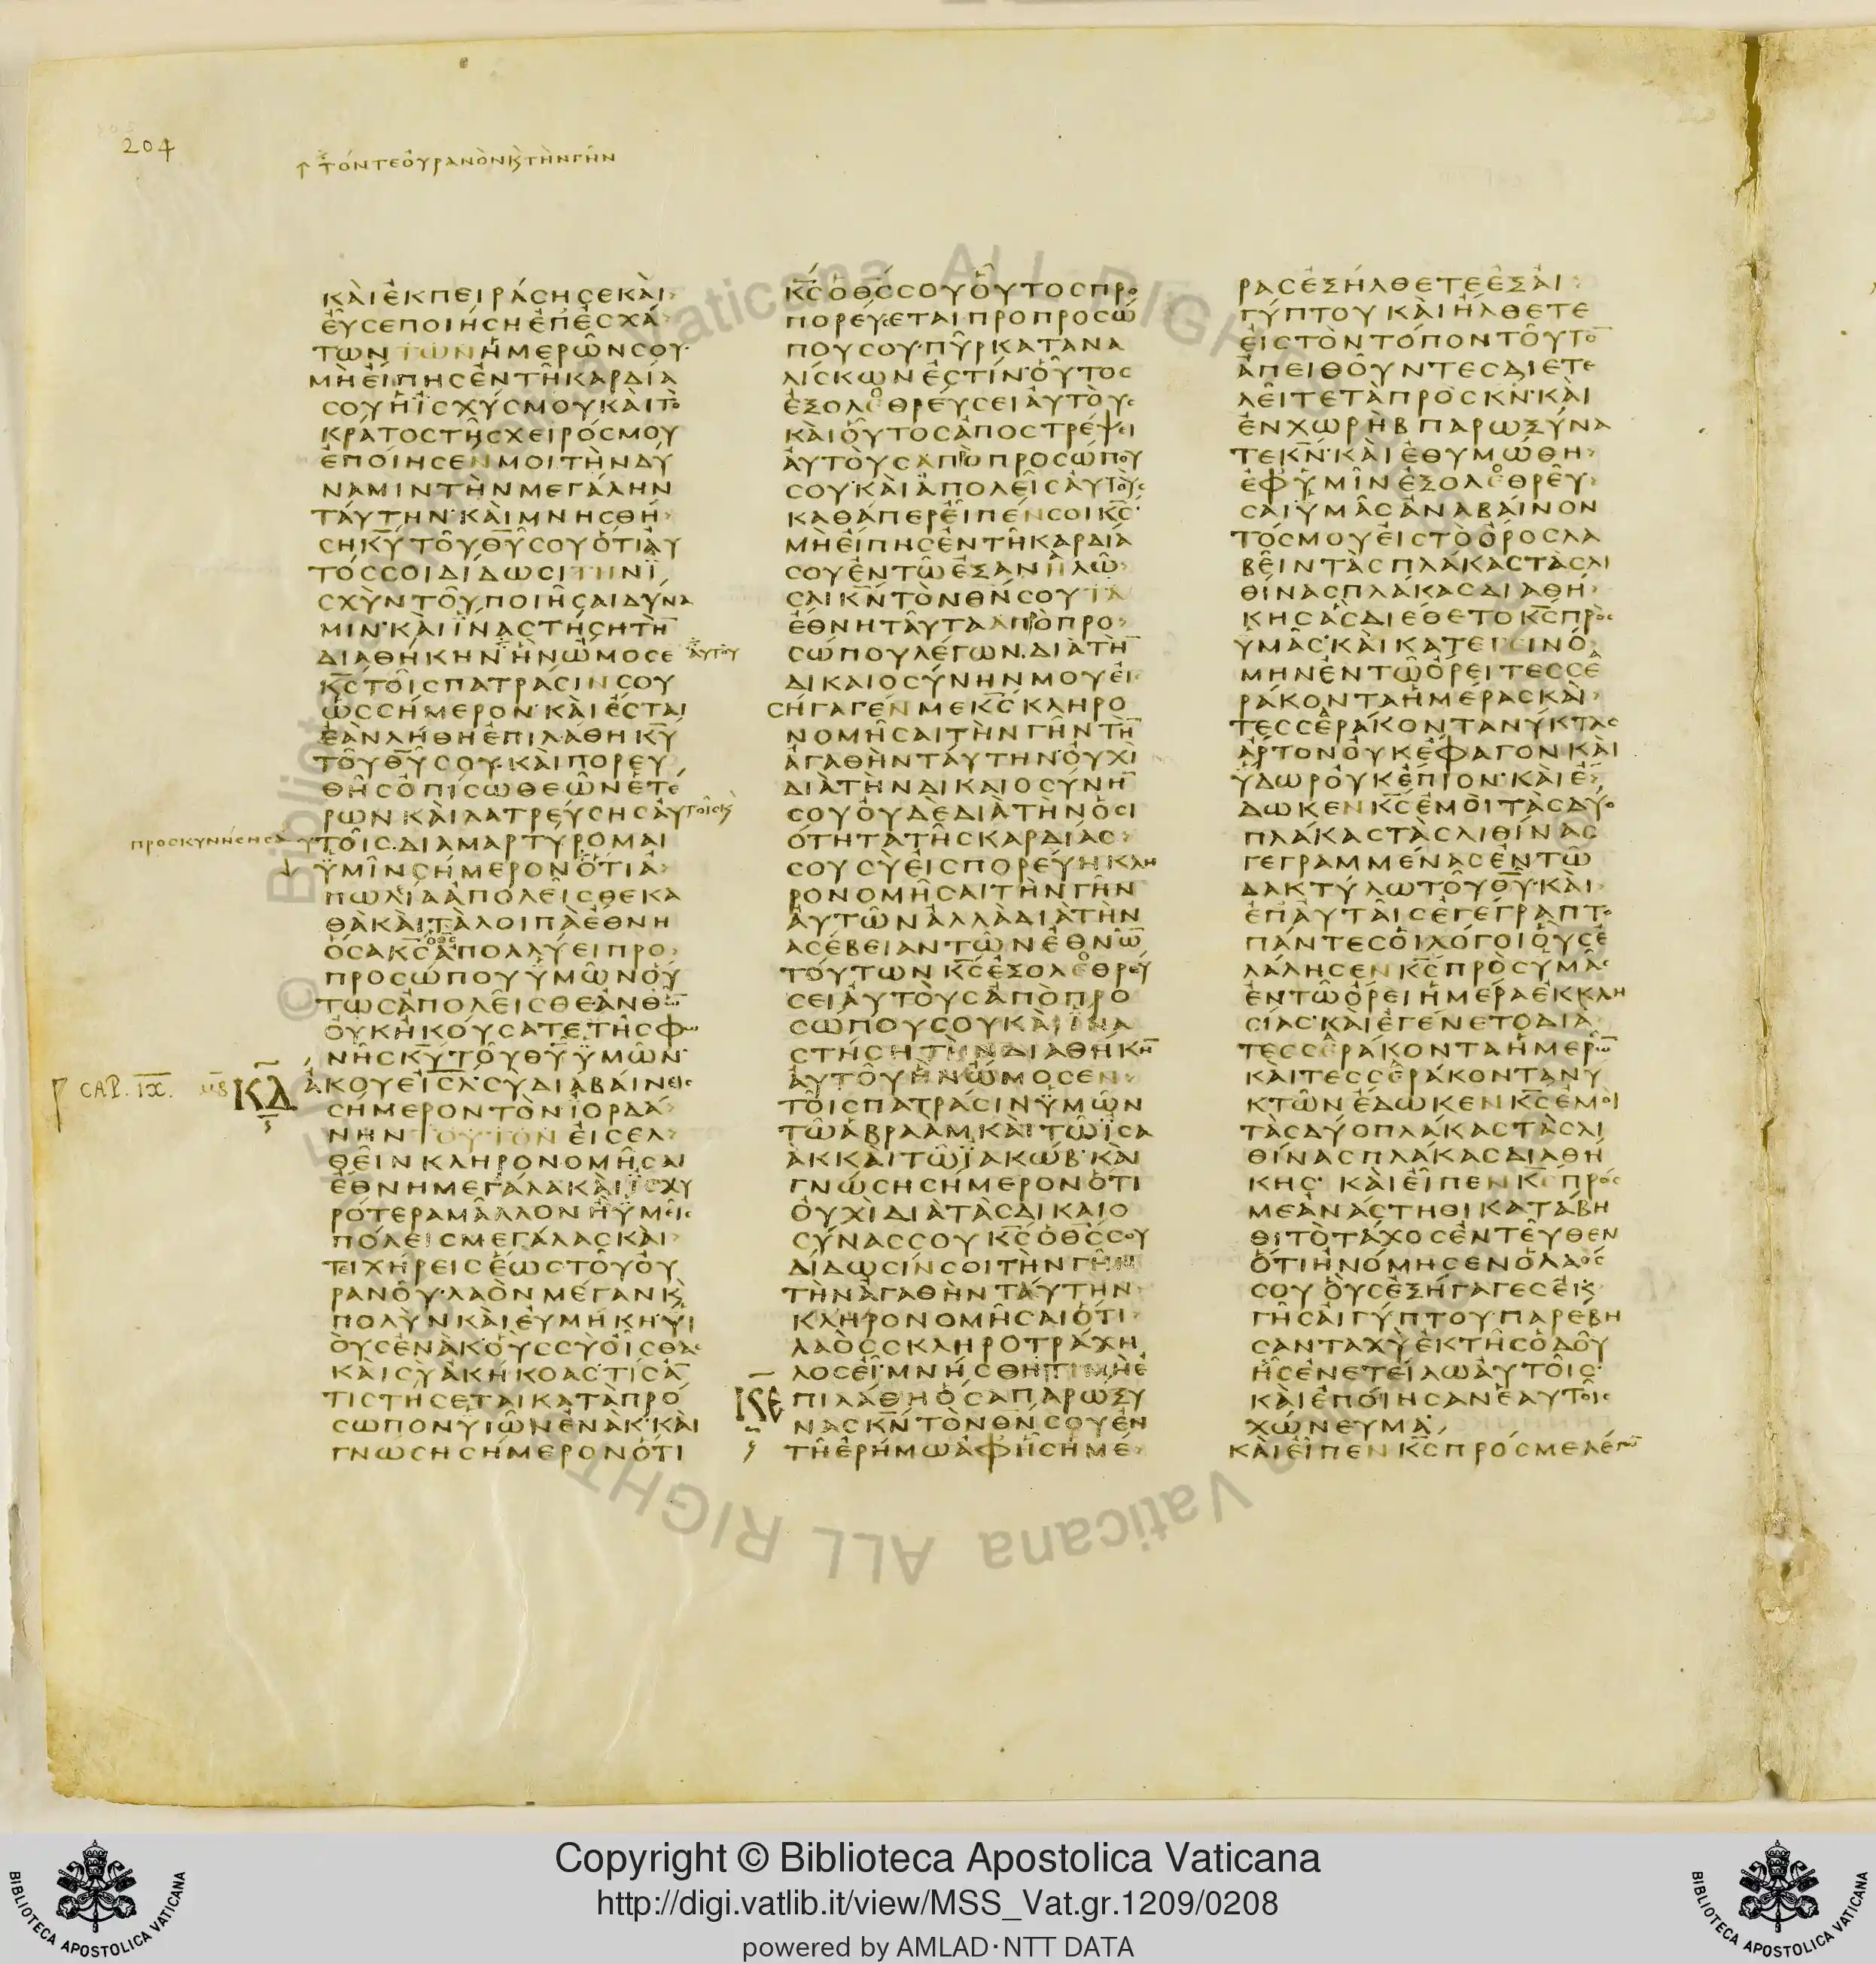 204
τόντεοὐρανὸνκ̣τὴνγῆν
ΚΑΙΕΚΠΕΙΡΑϹΗϹΕΚΑΙ
ΕΥϹΕΠΟΙΗϹΗΕΠΕϹΧΑ
ΤΩΝΤΩΝΗΜΕΡΩΝϹΟΥ·
ΜΗΕΙΠΗϹΕΝΤΗΚΑΡΔΙΑ
ϹΟΥΗΙϹΧΥϹΜΟΥΚΑΙΤΟ
ΚΡΑΤΟϹΤΗϹΧΕΙΡΟϹΜΟΥ
ΕΠΟΙΗϹΕΝΜΟΙΤΗΝΔΥ
ΝΑΜΙΝΤΗΝΜΕΓΑΛΗΝ
ΤΑΥΤΗΝ·ΚΑΙΜΝΗϹΘΗ
ϹΗΚΥ̅ΤΟΥΘΥ̅ϹΟΥΟΤΙΑΥ
ΤΟϹϹΟΙΔΙΔΩϹΙΤΗΝΙ
ϹΧΥΝΤΟΥΠΟΙΗϹΑΙΔΥΝΑ
ΜΙΝ·ΚΑΙΙΝΑϹΤΗϹΗΤΗ̅
ΔΙΑΘΗΚΗΝΗΝΩΜΟϹΕ αὐτοῦ
ΚϹ̅ΤΟΙϹΠΑΤΡΑϹΙΝϹΟΥ
ΩϹϹΗΜΕΡΟΝ·ΚΑΙΕϹΤΑΙ
ΕΑΝΛΗΘΗΕΠΙΛΑΘΗΚΥ̅
ΤΟΥΘΥ̅ϹΟΥ·ΚΑΙΠΟΡΕΥ
ΘΗϹΟΠΙϹΩΘΕΩΝΕΤΕ
ΡΩΝΚΑΙΛΑΤΡΕΥϹΗϹΑΥΤΟΙϹΚ
προσκυνήσησα ΥΤΟΙϹ·ΔΙΑΜΑΡΤΥΡΟΜΑΙ
ΥΜΙΝϹΗΜΕΡΟΝΟΤΙΑ
ΠΩΛΙΑΑΠΟΛΕΙϹΘΕΚΑ
ΘΑΚΑΙΤΑΛΟΙΠΑΕΘΝΗ
ΟϹΑΚϹ̅ΑΠΟΛΛΥΕΙΠΡΟ
ΠΡΟϹΩΠΟΥΥΜΩΝΟΥ
ΤΩϹΑΠΟΛΕΙϹΘΕΑΝΘΩ̅
ΟΥΚΗΚΟΥϹΑΤΕΤΗϹΦΩ
ΝΗϹΚΥ̅ΤΟΥΘΥ̅ΥΜΩΝ·
CAP. IX. ΚΔ ΑΚΟΥΕΙϹΛ̅·ϹΥΔΙΑΒΑΙΝΕΙϹ
ϹΗΜΕΡΟΝΤΟΝΙΟΡΔΑ
ΝΗΝΤΟΥΤΟΝΕΙϹΕΛ
ΘΕΙΝΚΛΗΡΟΝΟΜΗϹΑΙ
ΕΘΝΗΜΕΓΑΛΑΚΑΙΙϹΧΥ
ΡΟΤΕΡΑΜΑΛΛΟΝΗΥΜΕΙϹ
ΠΟΛΕΙϹΜΕΓΑΛΑϹΚΑΙ
ΤΕΙΧΗΡΕΙϹΕΩϹΤΟΥΟΥ
ΡΑΝΟΥ·ΛΑΟΝΜΕΓΑΝΚ
ΠΟΛΥΝΚΑΙΕΥΜΗΚΗ·ΥΙ
ΟΥϹΕΝΑΚ·ΟΥϹϹΥΟΙϹΘΑ·
ΚΑΙϹΥΑΚΗΚΟΑϹ·ΤΙϹΑ̅
ΤΙϹΤΗϹΕΤΑΙΚΑΤΑΠΡΟ
ϹΩΠΟΝΥΙΩΝΕΝΑΚ·ΚΑΙ
ΓΝΩϹΗϹΗΜΕΡΟΝΟΤΙ
ΚϹ̅ΟΘϹ̅ϹΟΥΟΥΤΟϹΠΡΟ
ΠΟΡΕΥϹΕΤΑΙΠΡΟΠΡΟϹΩ
ΠΟΥϹΟΥ·ΠΥΡΚΑΤΑΝΑ
ΛΙϹΚΩΝΕϹΤΙΝ·ΟΥΤΟϹ
ΕΞΟΛΕΘΡΕΥϹΕΙΑΥΤΟΥϹ
ΚΑΙΟΥΤΟϹΑΠΟϹΤΡΕΨΕΙ
ΑΥΤΟΥϹΑΠΟΠΡΟϹΩΠΟΥ
ϹΟΥ·ΚΑΙΑΠΟΛΕΙϹΑΥΤΟΥϹ
ΚΑΘΑΠΕΡΕΙΠΕΝϹΟΙΚϹ̅·
ΜΗΕΙΠΗϹΕΝΤΗΚΑΡΔΙΑ
ϹΟΥΕΝΤΩΕΞΑΝΑΛΩ
ϹΑΙΚΝ̅ΤΟΝΘΝ̅ϹΟΥΤΑ
ΕΘΝΗΤΑΥΤΑΑΠΟΠΡΟ
ϹΩΠΟΥΛΕΓΩΝ·ΔΙΑΤΗ̅
ΔΙΚΑΙΟϹΥΝΗΝΜΟΥΕΙ
ϹΗΓΑΓΕΝΜΕΚϹ̅ΚΛΗΡΟ
ΝΟΜΗϹΑΙΤΗΝΓΗΝΤΗ̅
ΑΓΑΘΗΝΤΑΥΤΗΝ·ΟΥΧΙ
ΔΙΑΤΗΝΔΙΚΑΙΟϹΥΝΗ̅
ϹΟΥΟΥΔΕΔΙΑΤΗΝΟϹΙ
ΟΤΗΤΑΤΗϹΚΑΡΔΙΑϹ
ϹΟΥϹΥΕΙϹΠΟΡΕΥΗΚΛΗ
ΡΟΝΟΜΗϹΑΙΤΗΝΓΗΝ
ΑΥΤΩΝΑΛΛΑΔΙΑΤΗΝ
ΑϹΕΒΕΙΑΝΤΩΝΕΘΝΩ̅
ΤΟΥΤΩΝΚϹ̅ΕΞΟΛΕΘΡΕΥ
ϹΕΙΑΥΤΟΥϹΑΠΟΠΡΟ
ϹΩΠΟΥϹΟΥΚΑΙΙΝΑ
ϹΤΗϹΗΤΗΝΔΙΑΘΗΚΗ̅
ΑΥΤΟΥΗΝΩΜΟϹΕΝ
ΤΟΙϹΠΑΤΡΑϹΙΝΥΜΩΝ
ΤΩΑΒΡΑΑΜΚΑΙΤΩΙϹΑ
ΑΚΚΑΙΤΩΙΑΚΩΒ·ΚΑΙ
ΓΝΩϹΗϹΗΜΕΡΟΝΟΤΙ
ΟΥΧΙΔΙΑΤΑϹΔΙΚΑΙΟ
ϹΥΝΑϹϹΟΥΚϹ̅ΟΘϹ̅ϹΟΥ
ΔΙΔΩϹΙΝϹΟΙΤΗΝΓΗΝ
ΤΗΝΑΓΑΘΗΝΤΑΥΤΗΝ
ΚΛΗΡΟΝΟΜΗϹΑΙΟΤΙ
ΛΑΟϹϹΚΛΗΡΟΤΡΑΧΗ
ΛΟϹΕΙ·ΜΝΗϹΘΗΤΙΜΗΕ
ΚΕ ΠΙΛΑΘΗΟϹΑΠΑΡΩΞΥ
ΝΑϹΚΝ̅ΤΟΝΘΝ̅ϹΟΥΕΝ
ΤΗΕΡΗΜΩΑΦΗϹΗΜΕ
ΡΑϹΕΞΗΛΘΕΤΕΕΞΑΙ
ΓΥΠΤΟΥΚΑΙΗΛΘΕΤΕ
ΕΙϹΤΟΝΤΟΠΟΝΤΟΥΤΟ̅
ΑΠΕΙΘΟΥΝΤΕϹΔΙΕΤΕ
ΛΕΙΤΕΤΑΠΡΟϹΚΝ̅·ΚΑΙ
ΕΝΧΩΡΗΒΠΑΡΩΞΥΝΑ
ΤΕΚΝ̅·ΚΑΙΕΘΥΜΩΘΗ
ΕΦΥΜΙΝΕΞΟΛΕΘΡΕΥ
ϹΑΙΥΜΑϹΑΝΑΒΑΙΝΟΝ
ΤΟϹΜΟΥΕΙϹΤΟΟΡΟϹΛΑ
ΒΕΙΝΤΑϹΠΛΑΚΑϹΤΑϹΛΙ
ΘΙΝΑϹΠΛΑΚΑϹΔΙΑΘΗ
ΚΗϹΑϹΔΙΕΘΕΤΟΚϹ̅ΠΡΟϹ
ΥΜΑϹ·ΚΑΙΚΑΤΕΓΕΙΝΟ
ΜΗΝΕΝΤΩΟΡΕΙΤΕϹϹΕ
ΡΑΚΟΝΤΑΗΜΕΡΑϹΚΑΙ
ΤΕϹϹΕΡΑΚΟΝΤΑΝΥΚΤΑϹ
ΑΡΤΟΝΟΥΚΕΦΑΓΟΝΚΑΙ
ΥΔΩΡΟΥΚΕΠΙΟΝ·ΚΑΙΕ
ΔΩΚΕΝΚϹ̅ΕΜΟΙΤΑϹΔΥΟ
ΠΛΑΚΑϹΤΑϹΛΙΘΙΝΑϹ
ΓΕΓΡΑΜΜΕΝΑϹΕΝΤΩ
ΔΑΚΤΥΛΩΤΟΥΘΥ̅·ΚΑΙ
ΕΠΑΥΤΑΙϹΕΓΕΓΡΑΠΤΟ
ΠΑΝΤΕϹΟΙΛΟΓΟΙΟΥϹΕ
ΛΑΛΗϹΕΝΚϹ̅ΠΡΟϹΥΜΑϹ
ΕΝΤΩΟΡΕΙΗΜΕΡΑΕΚΚΛΗ
ϹΙΑϹ·ΚΑΙΕΓΕΝΕΤΟΔΙΑ
ΤΕϹϹΕΡΑΚΟΝΤΑΗΜΕΡΩ̅
ΚΑΙΤΕϹϹΕΡΑΚΟΝΤΑΝΥ
ΚΤΩΝΕΔΩΚΕΝΚϹ̅ΕΜΟΙ
ΤΑϹΔΥΟΠΛΑΚΑϹΤΑϹΛΙ
ΘΙΝΑϹΠΛΑΚΑϹΔΙΑΘΗ
ΚΗϹ· ΚΑΙΕΙΠΕΝΚϹ̅ΠΡΟϹ
ΜΕΑΝΑϹΤΗΘΙΚΑΤΑΒΗ
ΘΙΤΟΤΑΧΟϹΕΝΤΕΥΘΕΝ
ΟΤΙΗΝΟΜΗϹΕΝΟΛΑΟϹ
ϹΟΥΟΥϹΕΞΗΓΑΓΕϹΕΚ
ΓΗϹΑΙΓΥΠΤΟΥ·ΠΑΡΕΒΗ
ϹΑΝΤΑΧΥΕΚΤΗϹΟΔΟΥ
ΗϹΕΝΕΤΕΙΛΩΑΥΤΟΙϹ·
ΚΑΙΕΠΟΙΗϹΑΝΕΑΥΤΟΙϹ
ΧΩΝΕΥΜΑ·
ΚΑΙΕΙΠΕΝΚϹ̅ΠΡΟϹΜΕΛΕΓΩ̅
Copyright © Biblioteca Apostolica Vaticana
http://digi.vatlib.it/view/MSS_Vat.gr.1209/0208
powered by AMLAD·NTT DATA
BIBLIOTECA APOSTOLICA VATICANA
BIBLIOTECA APOSTOLICA VATICANA